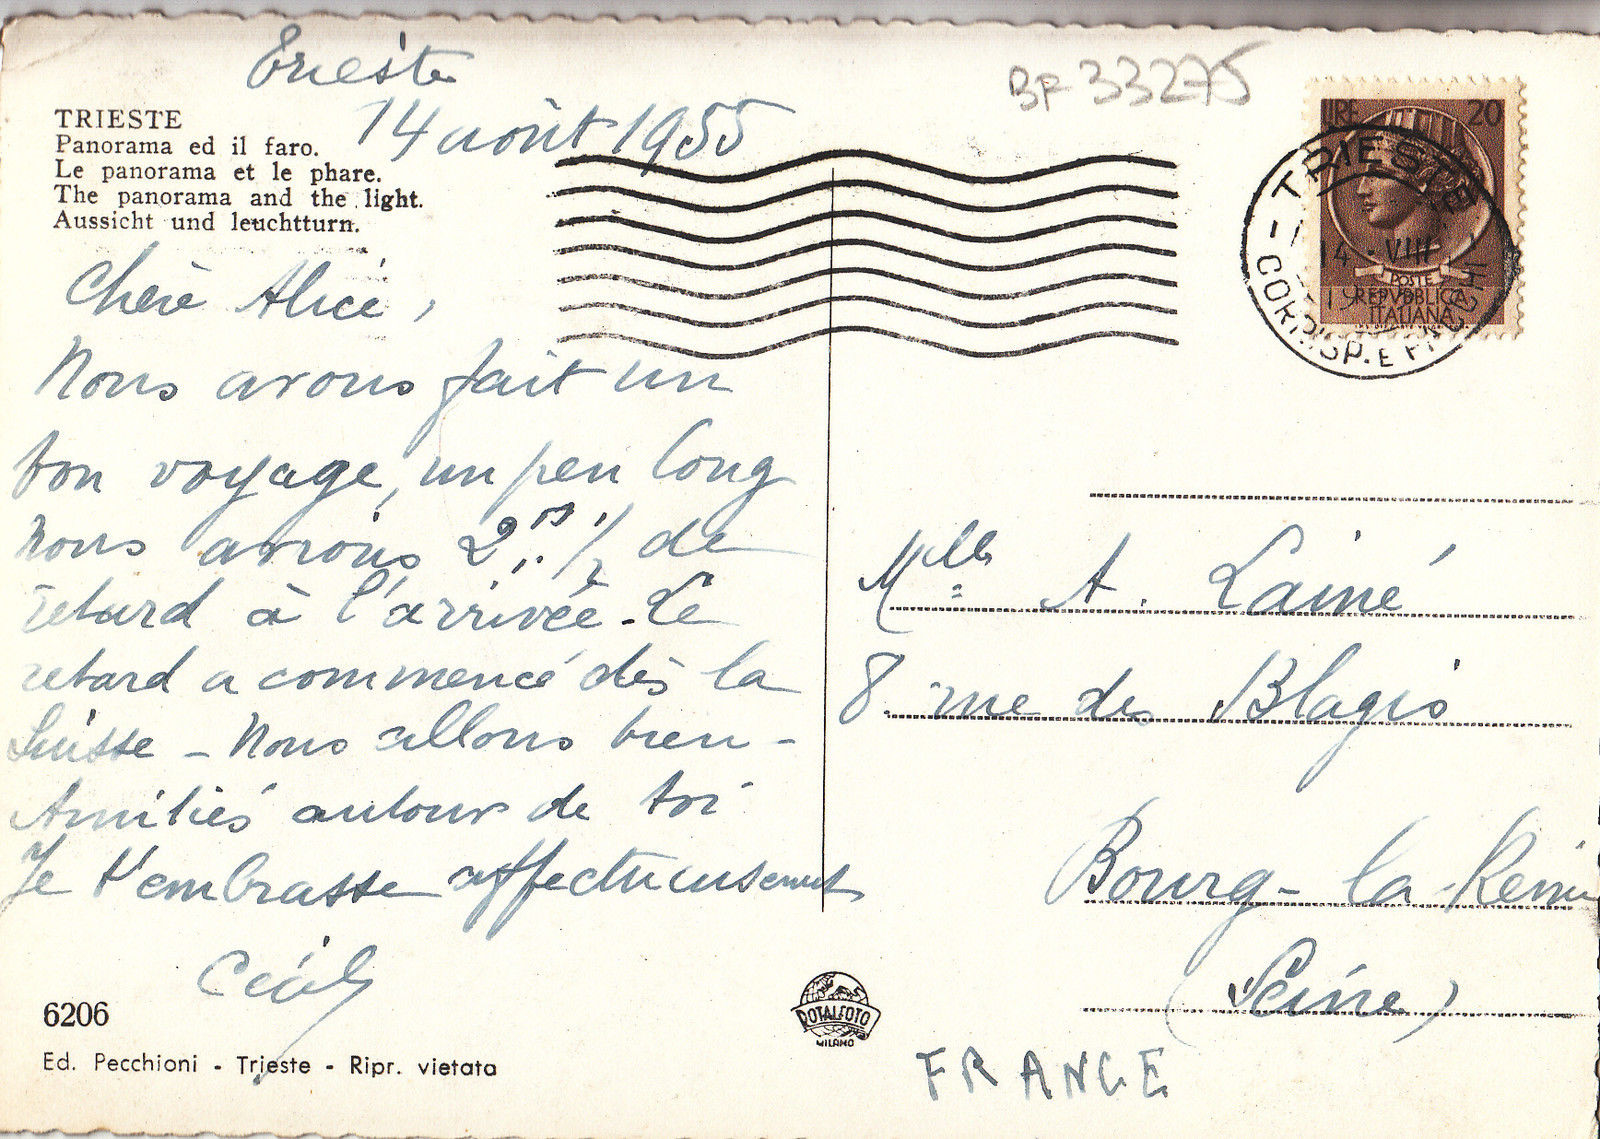 Trieste
14 août 1955
BF 33275
TRIESTE
Panorama ed il faro.
Le panorama et le phare.
The panorama and the light.
Aussicht und leuchtturn.
LIRE 20
POSTE
REPVBBLICA
ITALIANA
TRIESTE
14 - VIII
CORRISP. E
Chère Alice,
Nous avons fait un
bon voyage, un peu long
nous avions 2 1/2 de
retard à l'arrivée. Le
retard a commencé dès la
Suisse - Nous allons bien -
Amitiés autour de toi
Je t'embrasse affectueusement
6206
Ed. Pecchioni - Trieste - Ripr. vietata
ROTALFOTO
MILANO
Mlle A. Lainé
8 rue des Blagis
Bourg-la-Reine
(Seine)
FRANCE